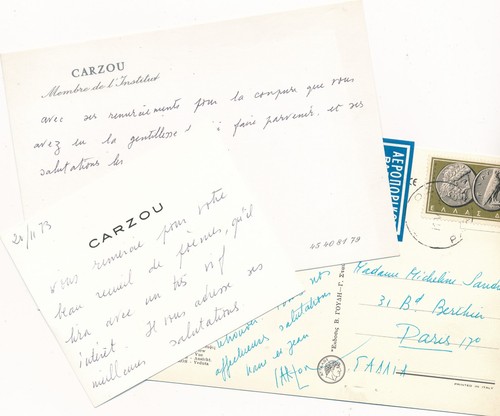 CARZOU
Membre de l'Institut
avec ses remerciements pour la coupure que vous
avez eu la gentillesse de faire parvenir. et ses
salutations les
45 40 81 79
CARZOU
vous remercie pour votre
beau recueil de poèmes, qu'il
lira avec un très vif
intérêt. Il vous adresse ses
meilleures salutations.
ΑΕΡΟΠΟΡΙΚΩΣ
ΕΛΛΑΣ
Madame Micheline
31 Bd Berthier
Paris 17o
ΓΑΛΛΙΑ
retrouver nos
affectueuses salutations
et Jean
Carzou
PRINTED IN ITALY